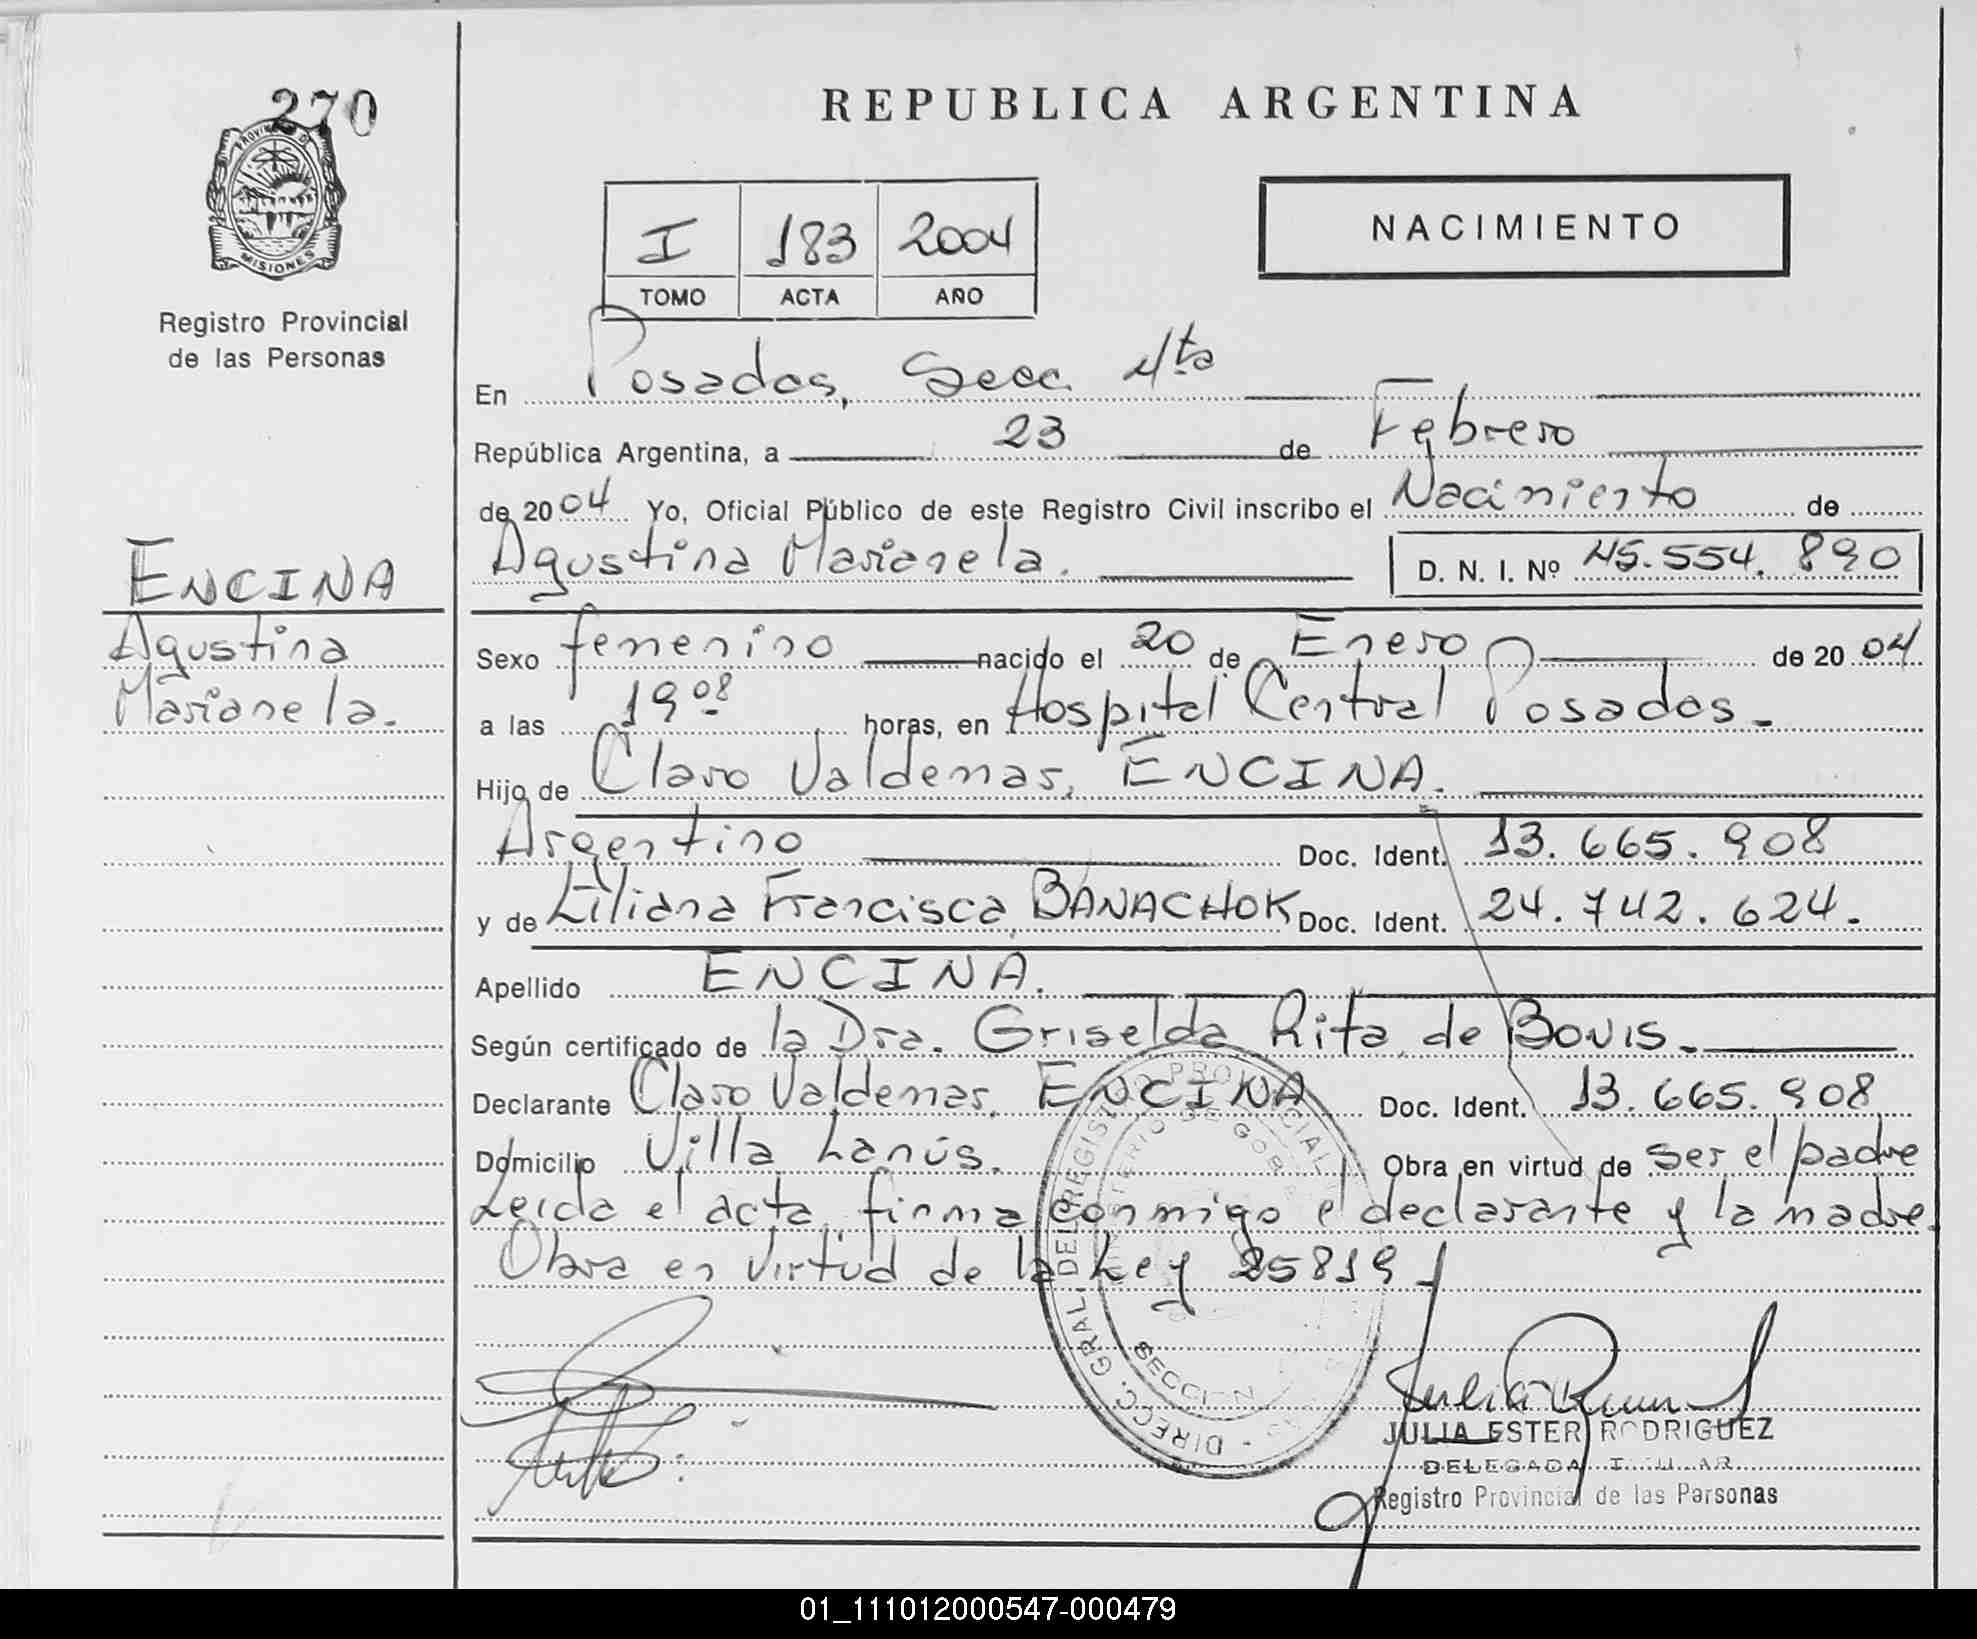 270
PROVINCIA DE
MISIONES
Registro Provincial
de las Personas
REPUBLICA ARGENTINA
I 183 2004
TOMO ACTA AÑO
NACIMIENTO
En Posadas, Secc. 4ta
República Argentina, a 23 de Febrero
de 2004 Yo, Oficial Público de este Registro Civil inscribo el Nacimiento de
Agustina Marianela. D. N. I. Nº 45.554.890
ENCINA
Agustina
Marianela.
Sexo femenino nacido el 20 de Enero de 2004
a las 19 08 horas, en Hospital Central Posadas.
Hijo de Claro Valdemar, ENCINA.
Argentino Doc. Ident. 13.665.908
y de Liliana Francisca, BANACHOK Doc. Ident. 24.742.624.
Apellido ENCINA.
Según certificado de la Dra. Griselda Rita, de BONIS.
Declarante Claro Valdemar, ENCINA Doc. Ident. 13.665.908
Domicilio Villa Lanús. Obra en virtud de ser el padre
Leída el acta, firma conmigo el declarante y la madre.
Obra en virtud de la Ley 25819
DIRECC. GRAL. DEL REGISTRO PROVINCIAL
SECCION
JULIA ESTER RODRIGUEZ
DELEGADA TITULAR
Registro Provincial de las Personas
01_111012000547-000479